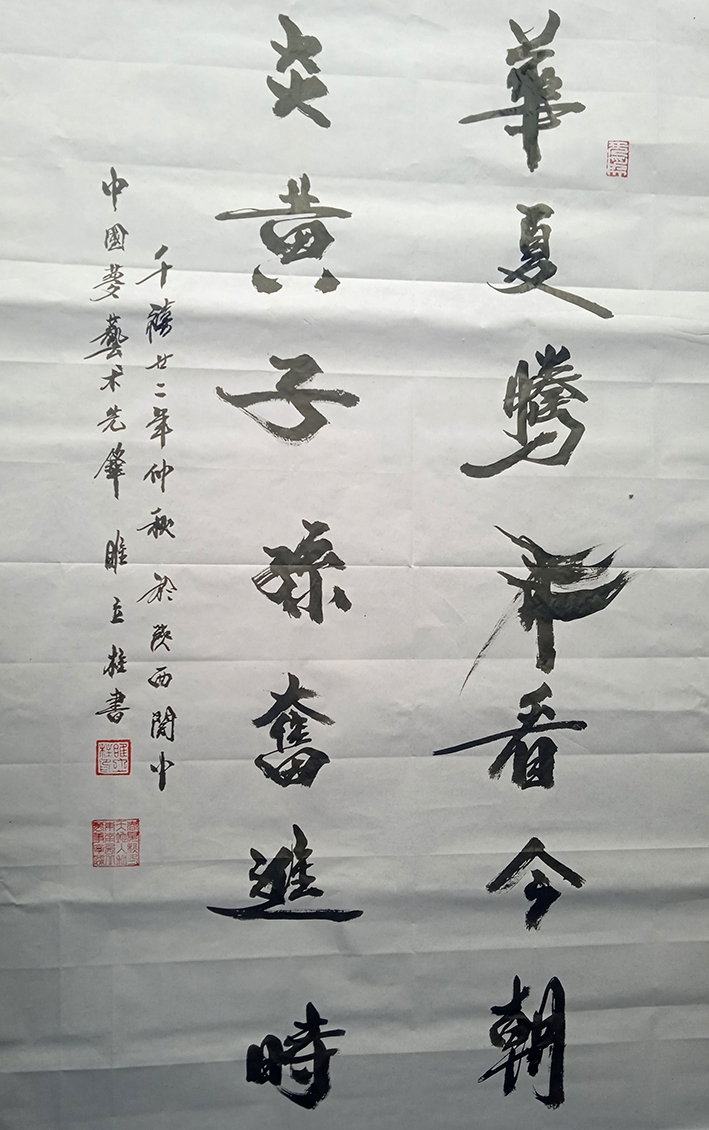 華夏騰飛看今朝
炎黃子孫奮進時
千禧廿二年仲秋於陝西關中
中國夢藝术先鋒 睢立柱書